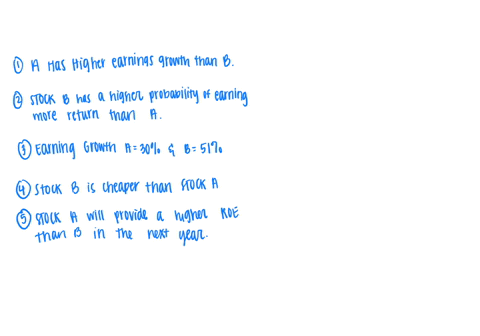 ① A Has Higher earnings growth than B.
② STOCK B has a higher probability of earning
more return than A.
③ Earning Growth A=30% & B=51%
④ Stock B is cheaper than Stock A
⑤ STOCK A will provide a higher ROE
than B in the next year.